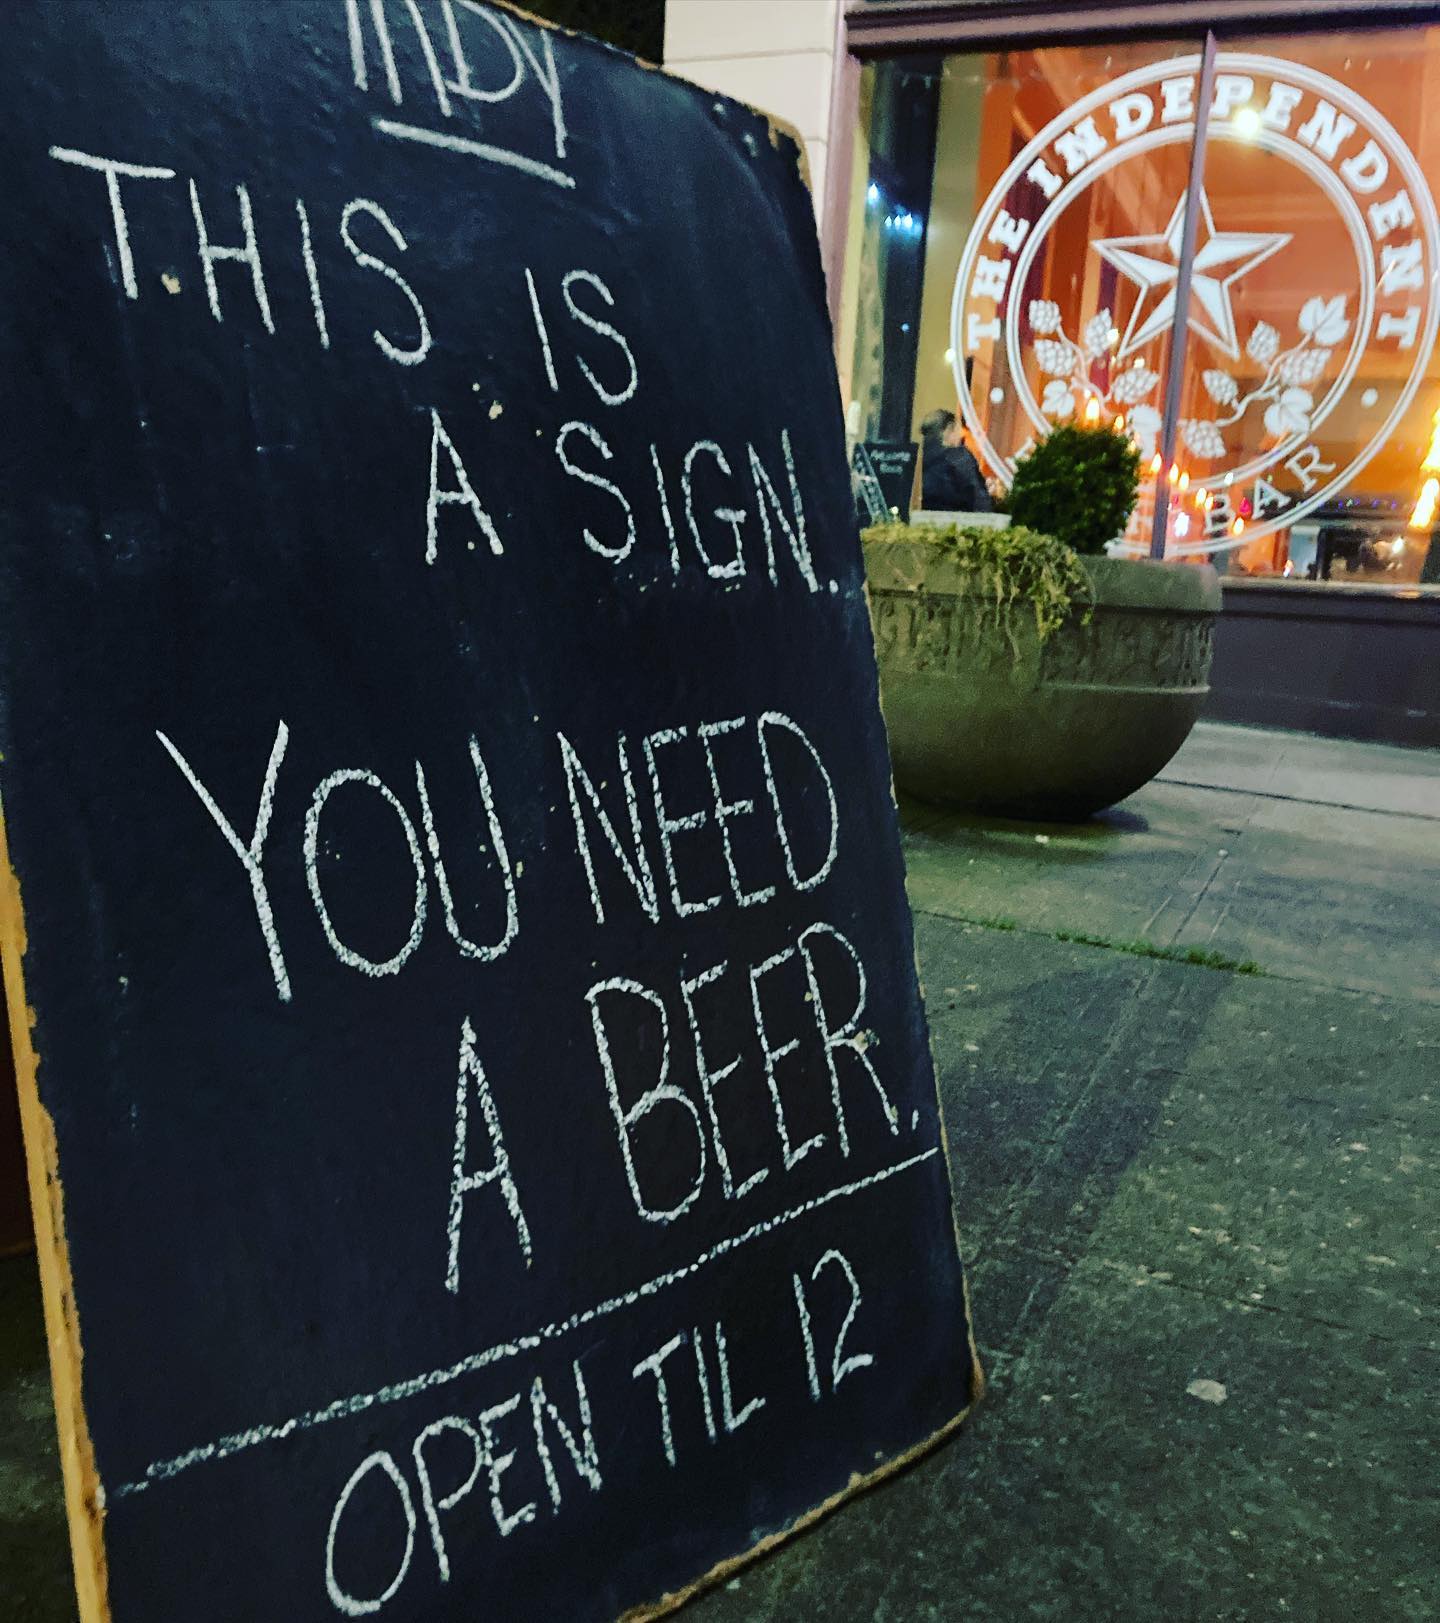 INDY
THIS IS
A SIGN.
YOU NEED
A BEER.
OPEN TIL 12
THE INDEPENDENT
BAR